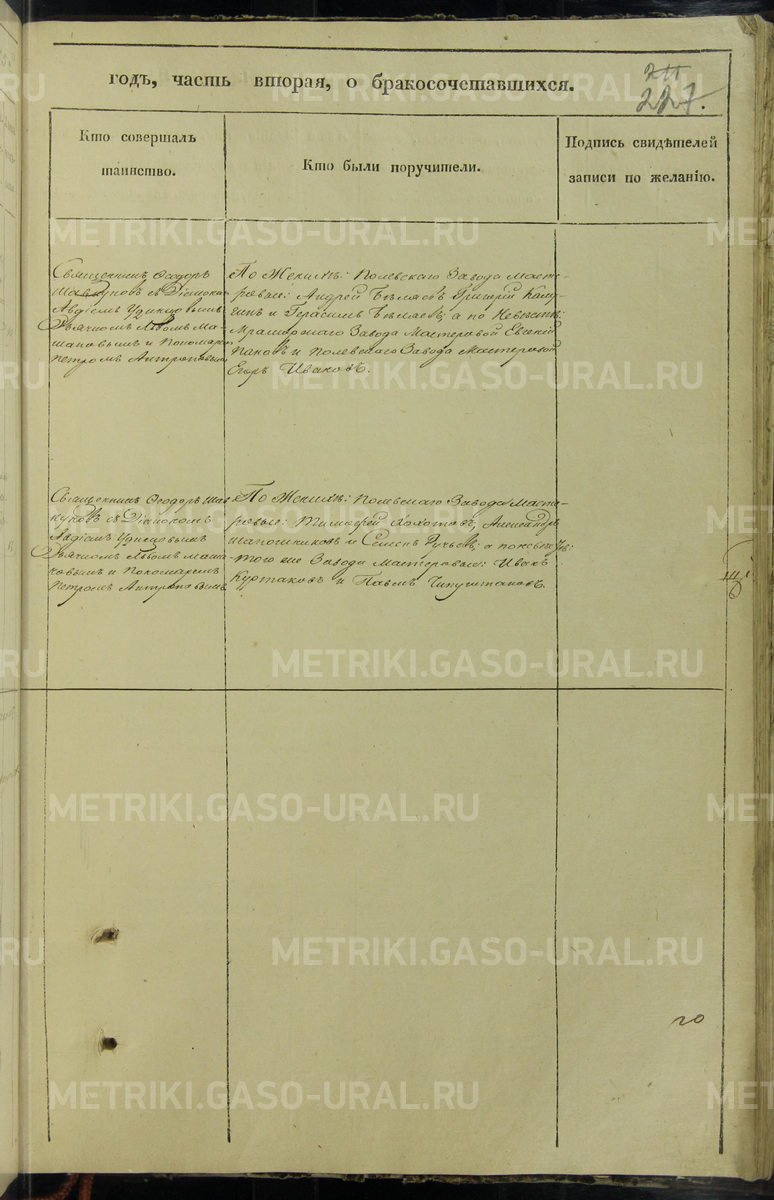 годъ, часть вторая, о бракосочетавшихся.
211
227.
Кто совершалъ
таинство.
Кто были поручители.
Подпись свидѣтелей
записи по желанію.
Священникъ Ѳеодоръ
съ Діакономъ
Авдіемъ Удинцовымъ
Дьячкомъ Львомъ Ма-
шановымъ и Пономаремъ
Петромъ Антроповымъ
По Женихѣ: Полевскаго Завода Масте-
ровые: Андрей Бѣляевъ Григорій
и Герасимъ Бѣляевъ; а по Невѣстѣ:
Мраморскаго Завода Мастеровой Евгеній
Пановъ и Полевскаго Завода Мастеровой
Егоръ Ивановъ.
Священникъ Ѳеодоръ
съ Діакономъ
Авдіемъ Удинцовымъ
Дьячкомъ Львомъ Маша-
новымъ и Пономаремъ
Петромъ Антроповымъ
По Женихѣ: Полевскаго Завода Масте-
ровые: Тимофей Хохотовъ, Александръ
Шапошниковъ и Семенъ; а по невѣстѣ:
того же Завода Мастеровые: Иванъ
и Павелъ
METRIKI.GASO-URAL.RU